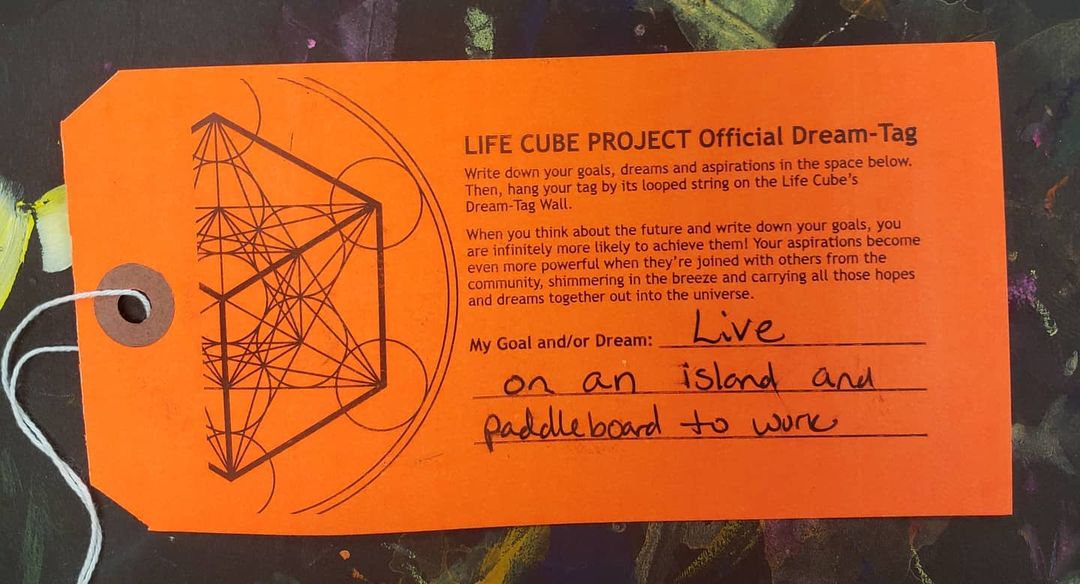 LIFE CUBE PROJECT Official Dream-Tag
Write down your goals, dreams and aspirations in the space below.
Then, hang your tag by its looped string on the Life Cube's
Dream-Tag Wall.
When you think about the future and write down your goals, you
are infinitely more likely to achieve them! Your aspirations become
even more powerful when they're joined with others from the
community, shimmering in the breeze and carrying all those hopes
and dreams together out into the universe.
My Goal and/or Dream: Live
on an island and
paddleboard to work